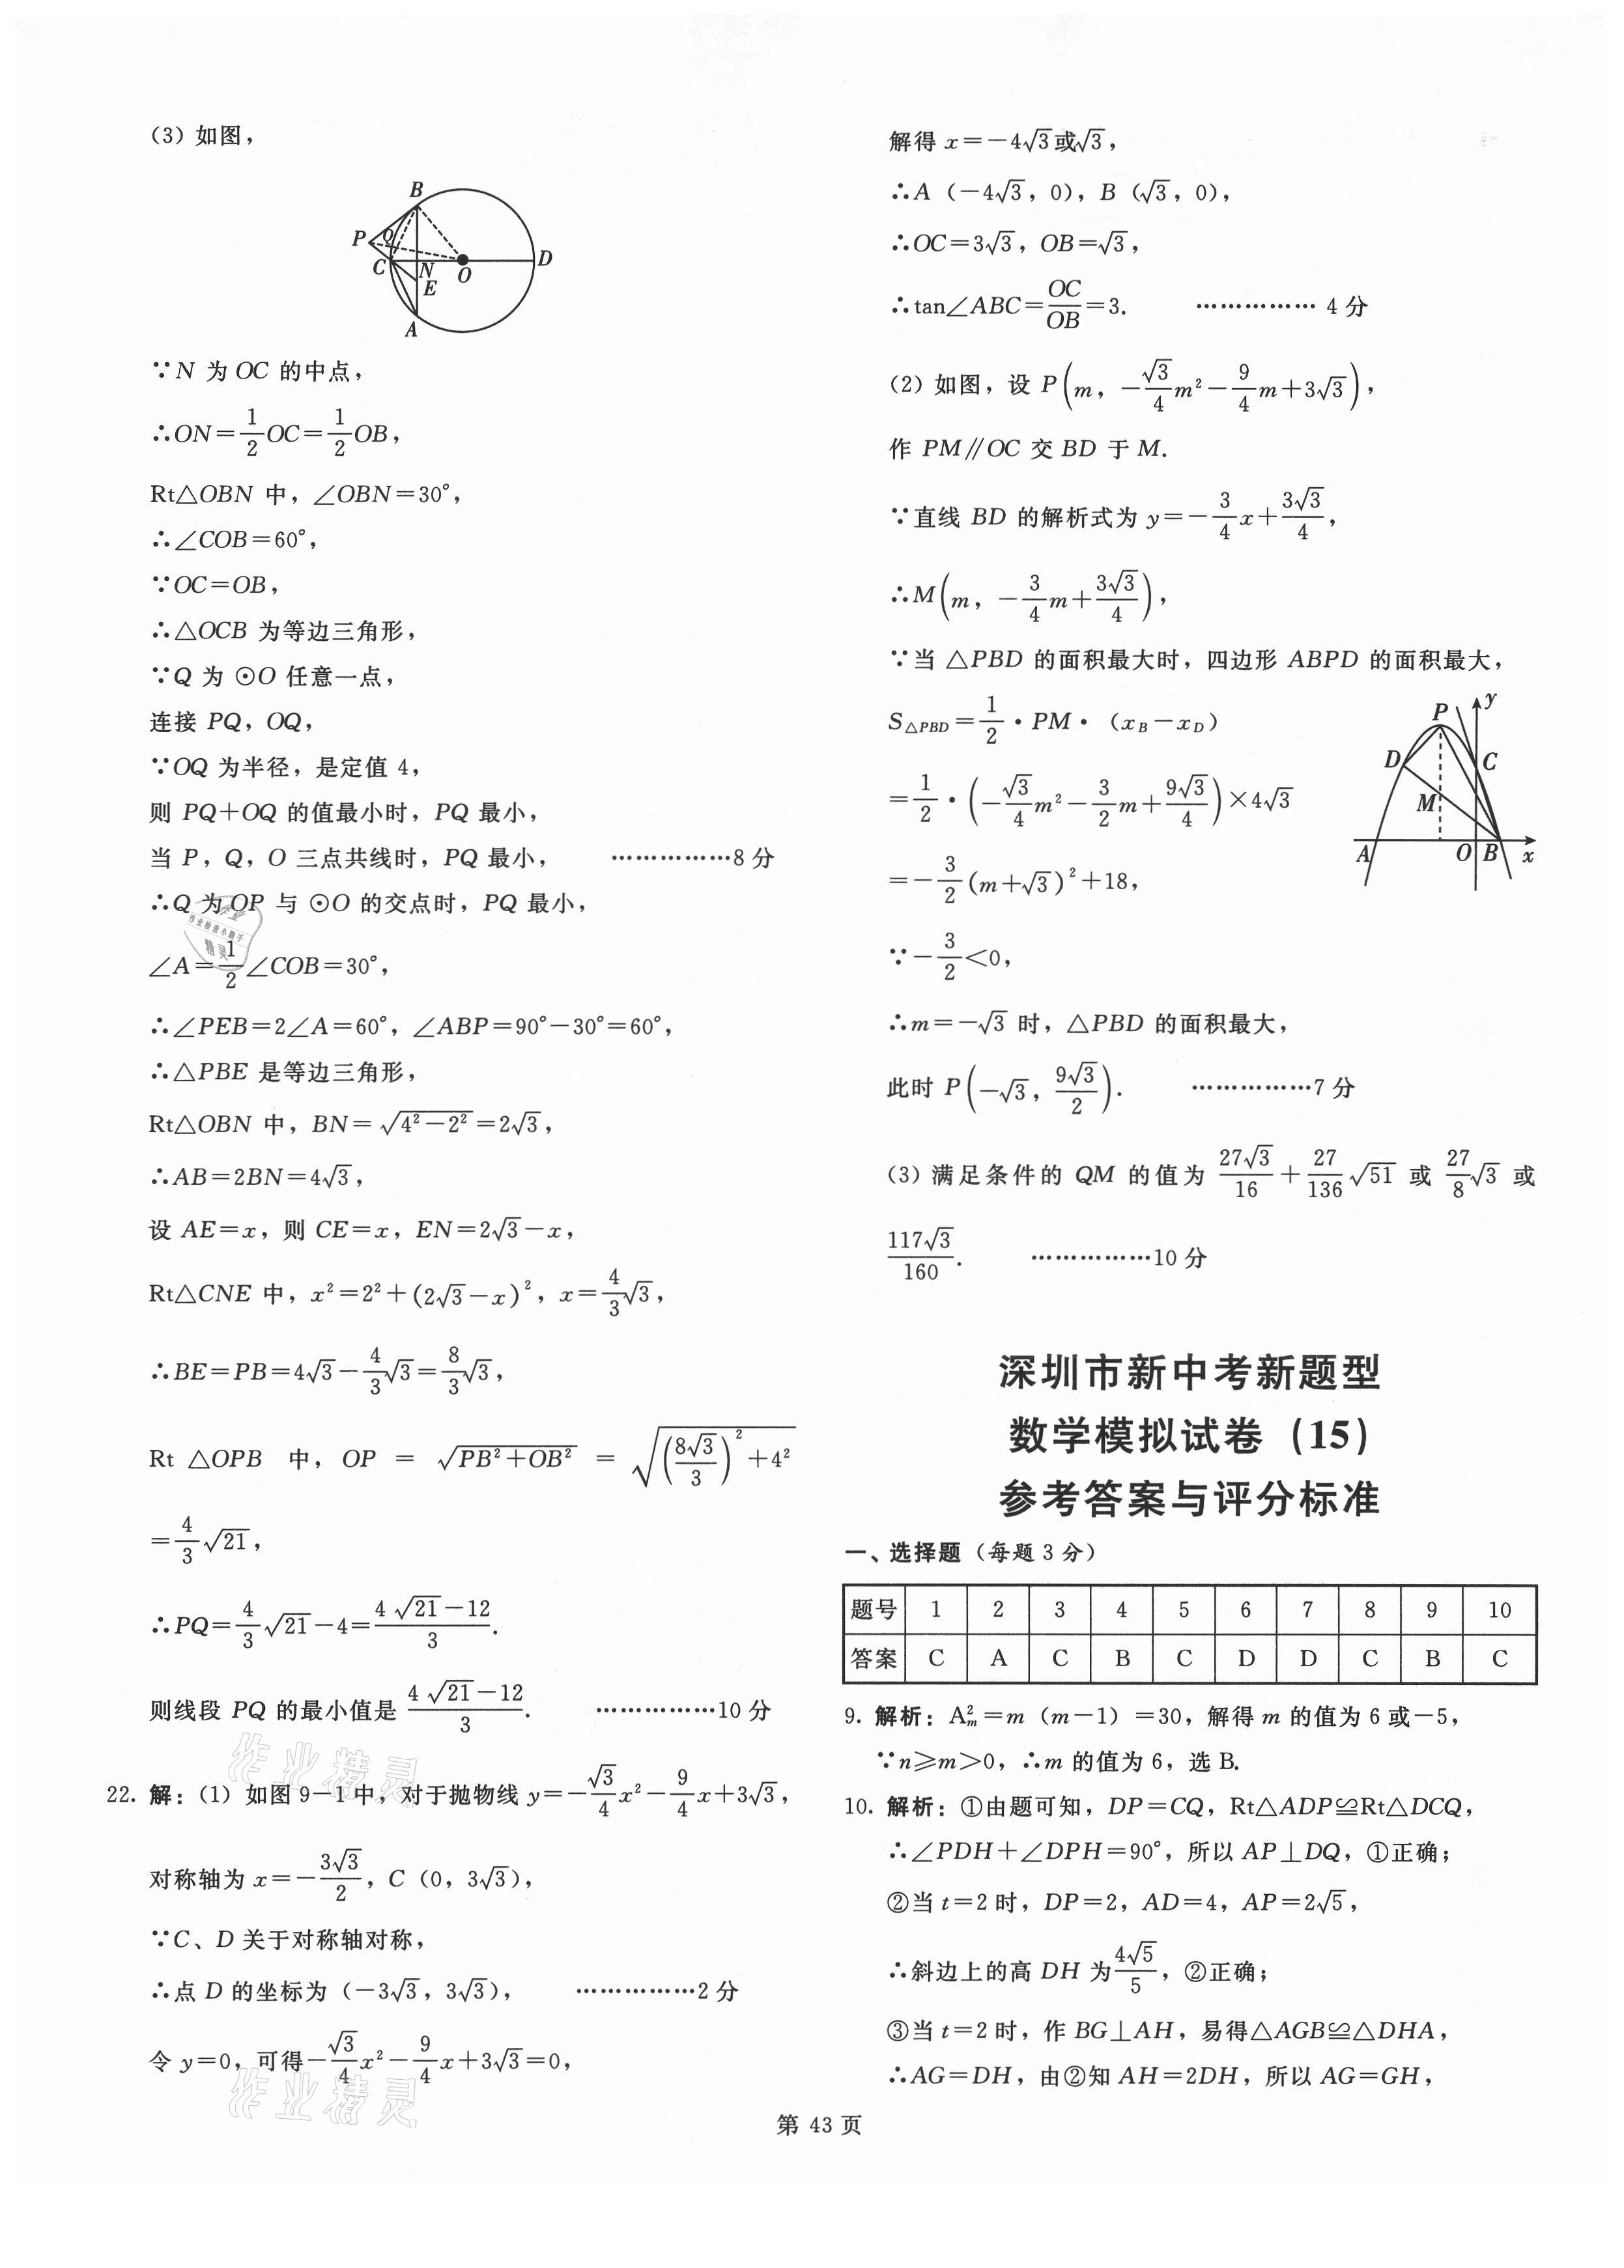 (3) 如图，
B
P
Q
C
N
O
D
E
A
∵N 为 OC 的中点，
∴ON=1/2OC=1/2OB，
Rt△OBN 中，∠OBN=30°，
∴∠COB=60°，
∵OC=OB，
∴△OCB 为等边三角形，
∵Q 为 ⊙O 任意一点，
连接 PQ，OQ，
∵OQ 为半径，是定值 4，
则 PQ+OQ 的值最小时，PQ 最小，
当 P，Q，O 三点共线时，PQ 最小， ……………8 分
∴Q 为 OP 与 ⊙O 的交点时，PQ 最小，
∠A=1/2∠COB=30°，
∴∠PEB=2∠A=60°，∠ABP=90°-30°=60°，
∴△PBE 是等边三角形，
Rt△OBN 中，BN=√(4²-2²)=2√3，
∴AB=2BN=4√3，
设 AE=x，则 CE=x，EN=2√3-x，
Rt△CNE 中，x²=2²+(2√3-x)²，x=4/3√3，
∴BE=PB=4√3-4/3√3=8/3√3，
Rt △OPB 中，OP = √(PB²+OB²) = √((8√3/3)²+4²)
=4/3√21，
∴PQ=4/3√21-4=(4√21-12)/3.
则线段 PQ 的最小值是 (4√21-12)/3. ……………10 分
22. 解：(1) 如图 9-1 中，对于抛物线 y=-√3/4x²-9/4x+3√3，
对称轴为 x=-3√3/2，C (0，3√3)，
∵C、D 关于对称轴对称，
∴点 D 的坐标为 (-3√3，3√3)， ……………2 分
令 y=0，可得-√3/4x²-9/4x+3√3=0，
解得 x=-4√3或√3，
∴A (-4√3，0)，B (√3，0)，
∴OC=3√3，OB=√3，
∴tan∠ABC=OC/OB=3. …………… 4 分
(2) 如图，设 P(m，-√3/4m²-9/4m+3√3)，
作 PM∥OC 交 BD 于 M.
∵直线 BD 的解析式为 y=-3/4x+3√3/4，
∴M(m，-3/4m+3√3/4)，
∵当 △PBD 的面积最大时，四边形 ABPD 的面积最大，
S△PBD=1/2·PM·(xB-xD)
=1/2·(-√3/4m²-3/2m+9√3/4)×4√3
=-3/2(m+√3)²+18，
∵-3/2<0，
∴m=-√3 时，△PBD 的面积最大，
此时 P(-√3，9√3/2). ……………7 分
y
P
D
C
M
A
O
B
x
(3) 满足条件的 QM 的值为 27√3/16+27/136√51 或 27/8√3 或
117√3/160. ……………10 分
深圳市新中考新题型
数学模拟试卷 (15)
参考答案与评分标准
一、选择题（每题 3 分）
题号 1 2 3 4 5 6 7 8 9 10
答案 C A C B C D D C B C
9. 解析：A²m=m (m-1) =30，解得 m 的值为 6 或-5，
∵n⩾m>0，∴m 的值为 6，选 B.
10. 解析：①由题可知，DP=CQ，Rt△ADP≌Rt△DCQ，
∴∠PDH+∠DPH=90°，所以 AP⊥DQ，①正确；
②当 t=2 时，DP=2，AD=4，AP=2√5，
∴斜边上的高 DH 为4√5/5，②正确；
③当 t=2 时，作 BG⊥AH，易得△AGB≌△DHA，
∴AG=DH，由②知 AH=2DH，所以 AG=GH，
第 43 页
作业精灵
作业精灵
作业
作业检查小助手
精灵